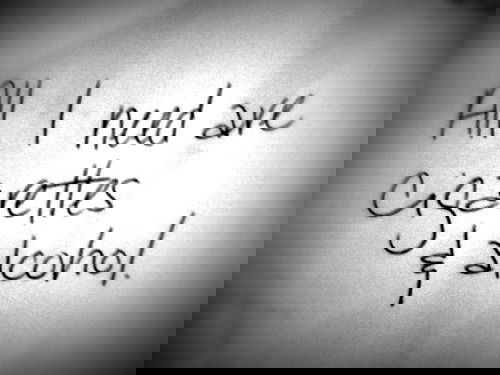 All I need are
cigarettes
& alcohol.